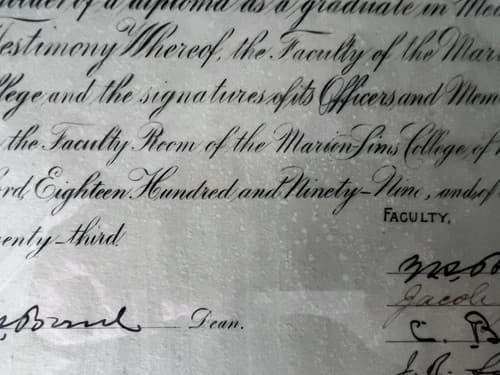 of a diploma as a graduate in
Testimony Whereof, the Faculty of the Mari
llege and the signatures of its Officers and Mem
the Faculty Room of the Marion-Sims College of
ord, Eighteen Hundred and Ninety-Nine, and of
FACULTY,
enty-third
Jacob
Dean.
C. B
J. R.